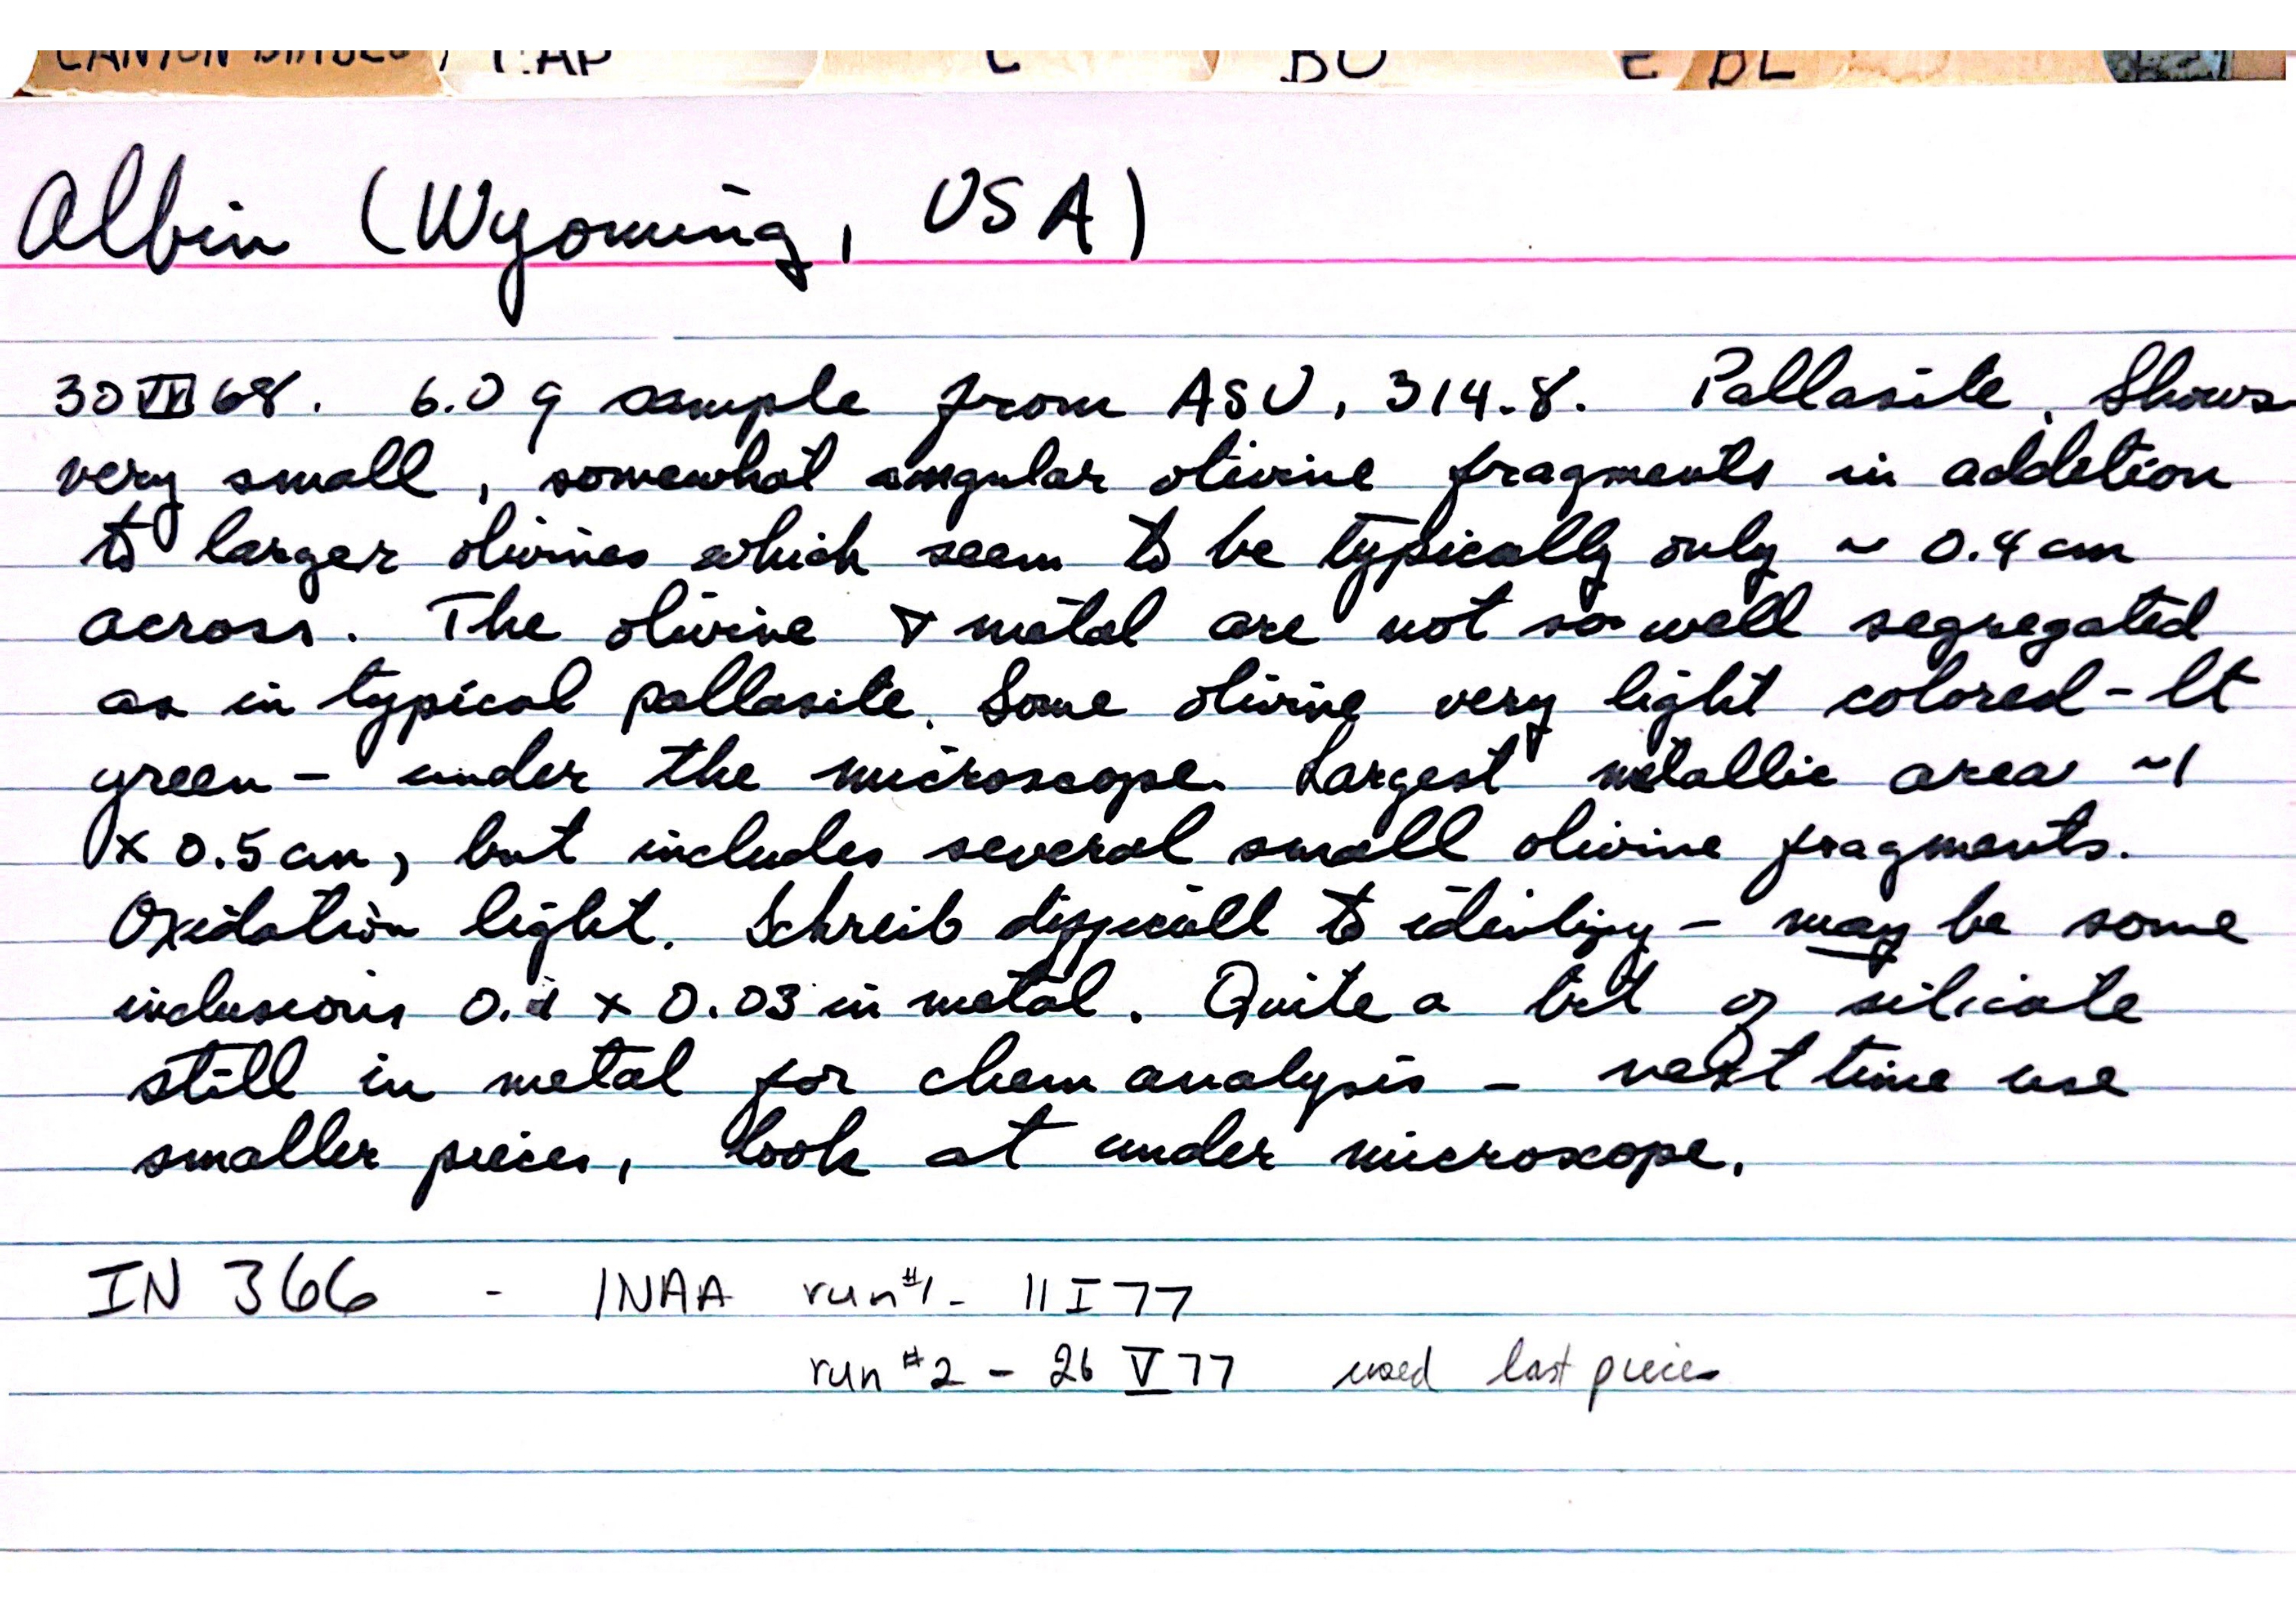 CANYON DIABLO CAP C BU E BL
Albin (Wyoming, USA)
30 VI 68. 6.0 g sample from ASU, 314.8. Pallasite. Shows
very small, somewhat angular olivine fragments in addition
to larger olivines which seem to be typically only ~ 0.4 cm
across. The olivine & metal are not so well segregated
as in typical pallasite. Some olivine very light colored - lt
green - under the microscope. Largest metallic area ~1
x 0.5 cm, but includes several small olivine fragments.
Oxidation light. Schreib difficult to identify - may be some
inclusions 0.1 x 0.03 in metal. Quite a bit of silicate
still in metal for chem analysis - next time use
smaller pieces, look at under microscope.
IN 366 - INAA run #1 - 11 I 77
run #2 - 26 V 77 used last piece